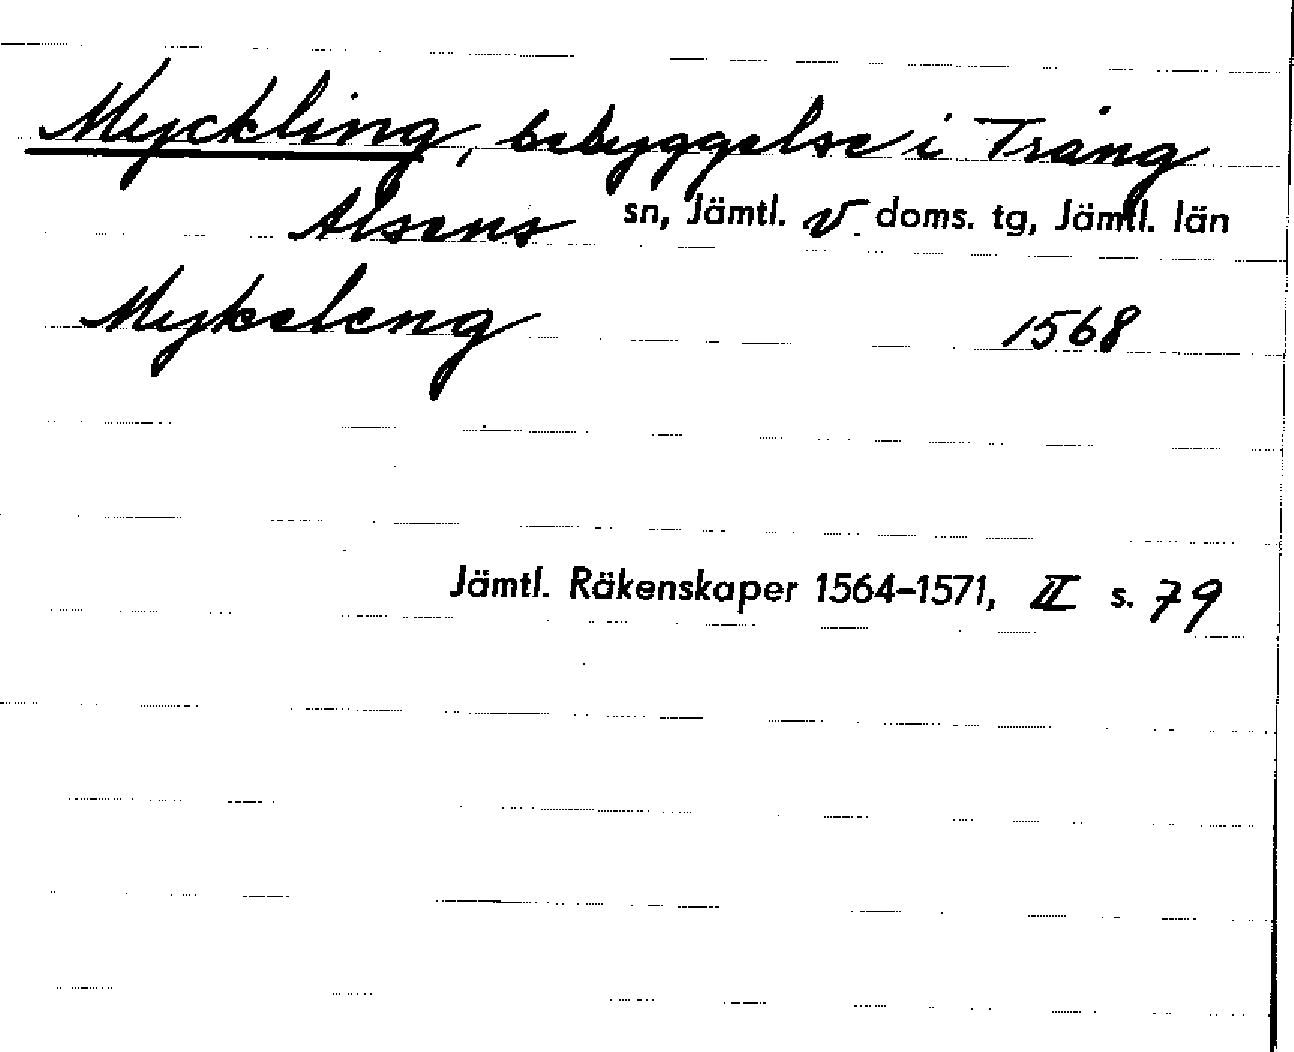 Myckling, bebyggelse i Trång
Alsens sn, Jämtl. v. doms. tg, Jämtl. län
Mykeleng 1568
Jämtl. Räkenskaper 1564-1571, II s. 79